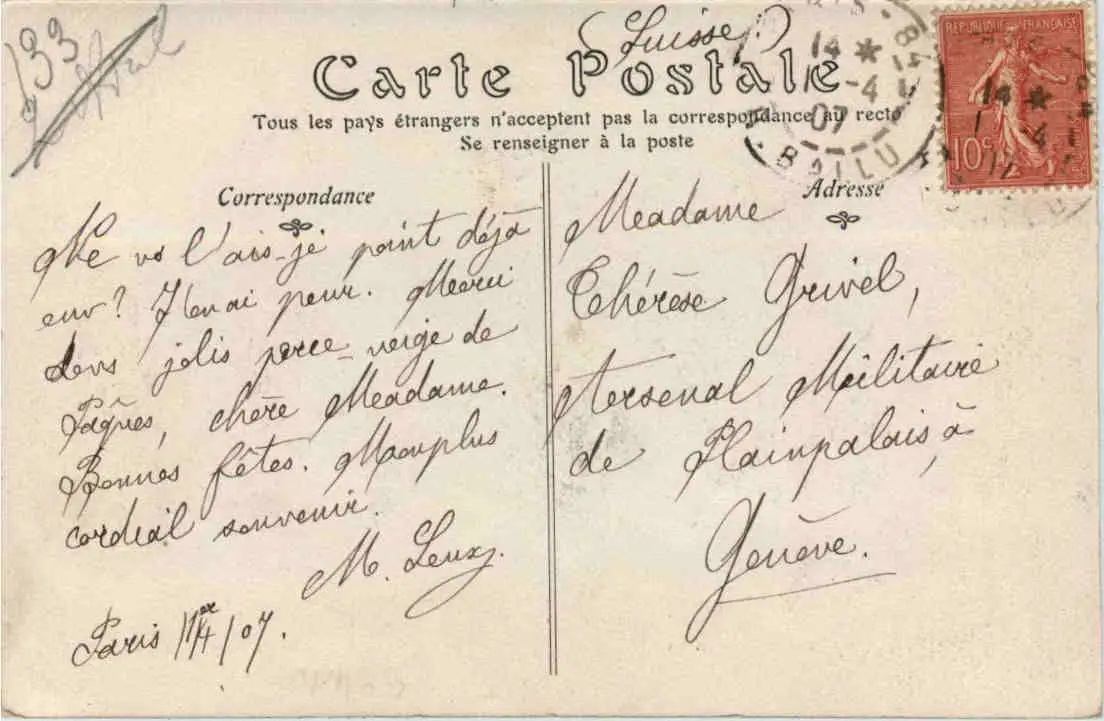 133
(Suisse)
Carte Postale
Tous les pays étrangers n'acceptent pas la correspondance au recto
Se renseigner à la poste
Correspondance
Ne vs l'ais-je point déjà
env? J'en ai peur. Merci
de vs jolis perce-neige de
Pâques, chère Madame.
Bonnes fêtes. Mon plus
cordial souvenir.
M.
Paris 1er/4/07.
Adresse
Madame
Thérèse Grivel,
Arsenal Militaire
de Plainpalais, à
Genève.
RÉPUBLIQUE FRANÇAISE
10c
14 *
1 -4
07
BALLU
14 *
1 -4